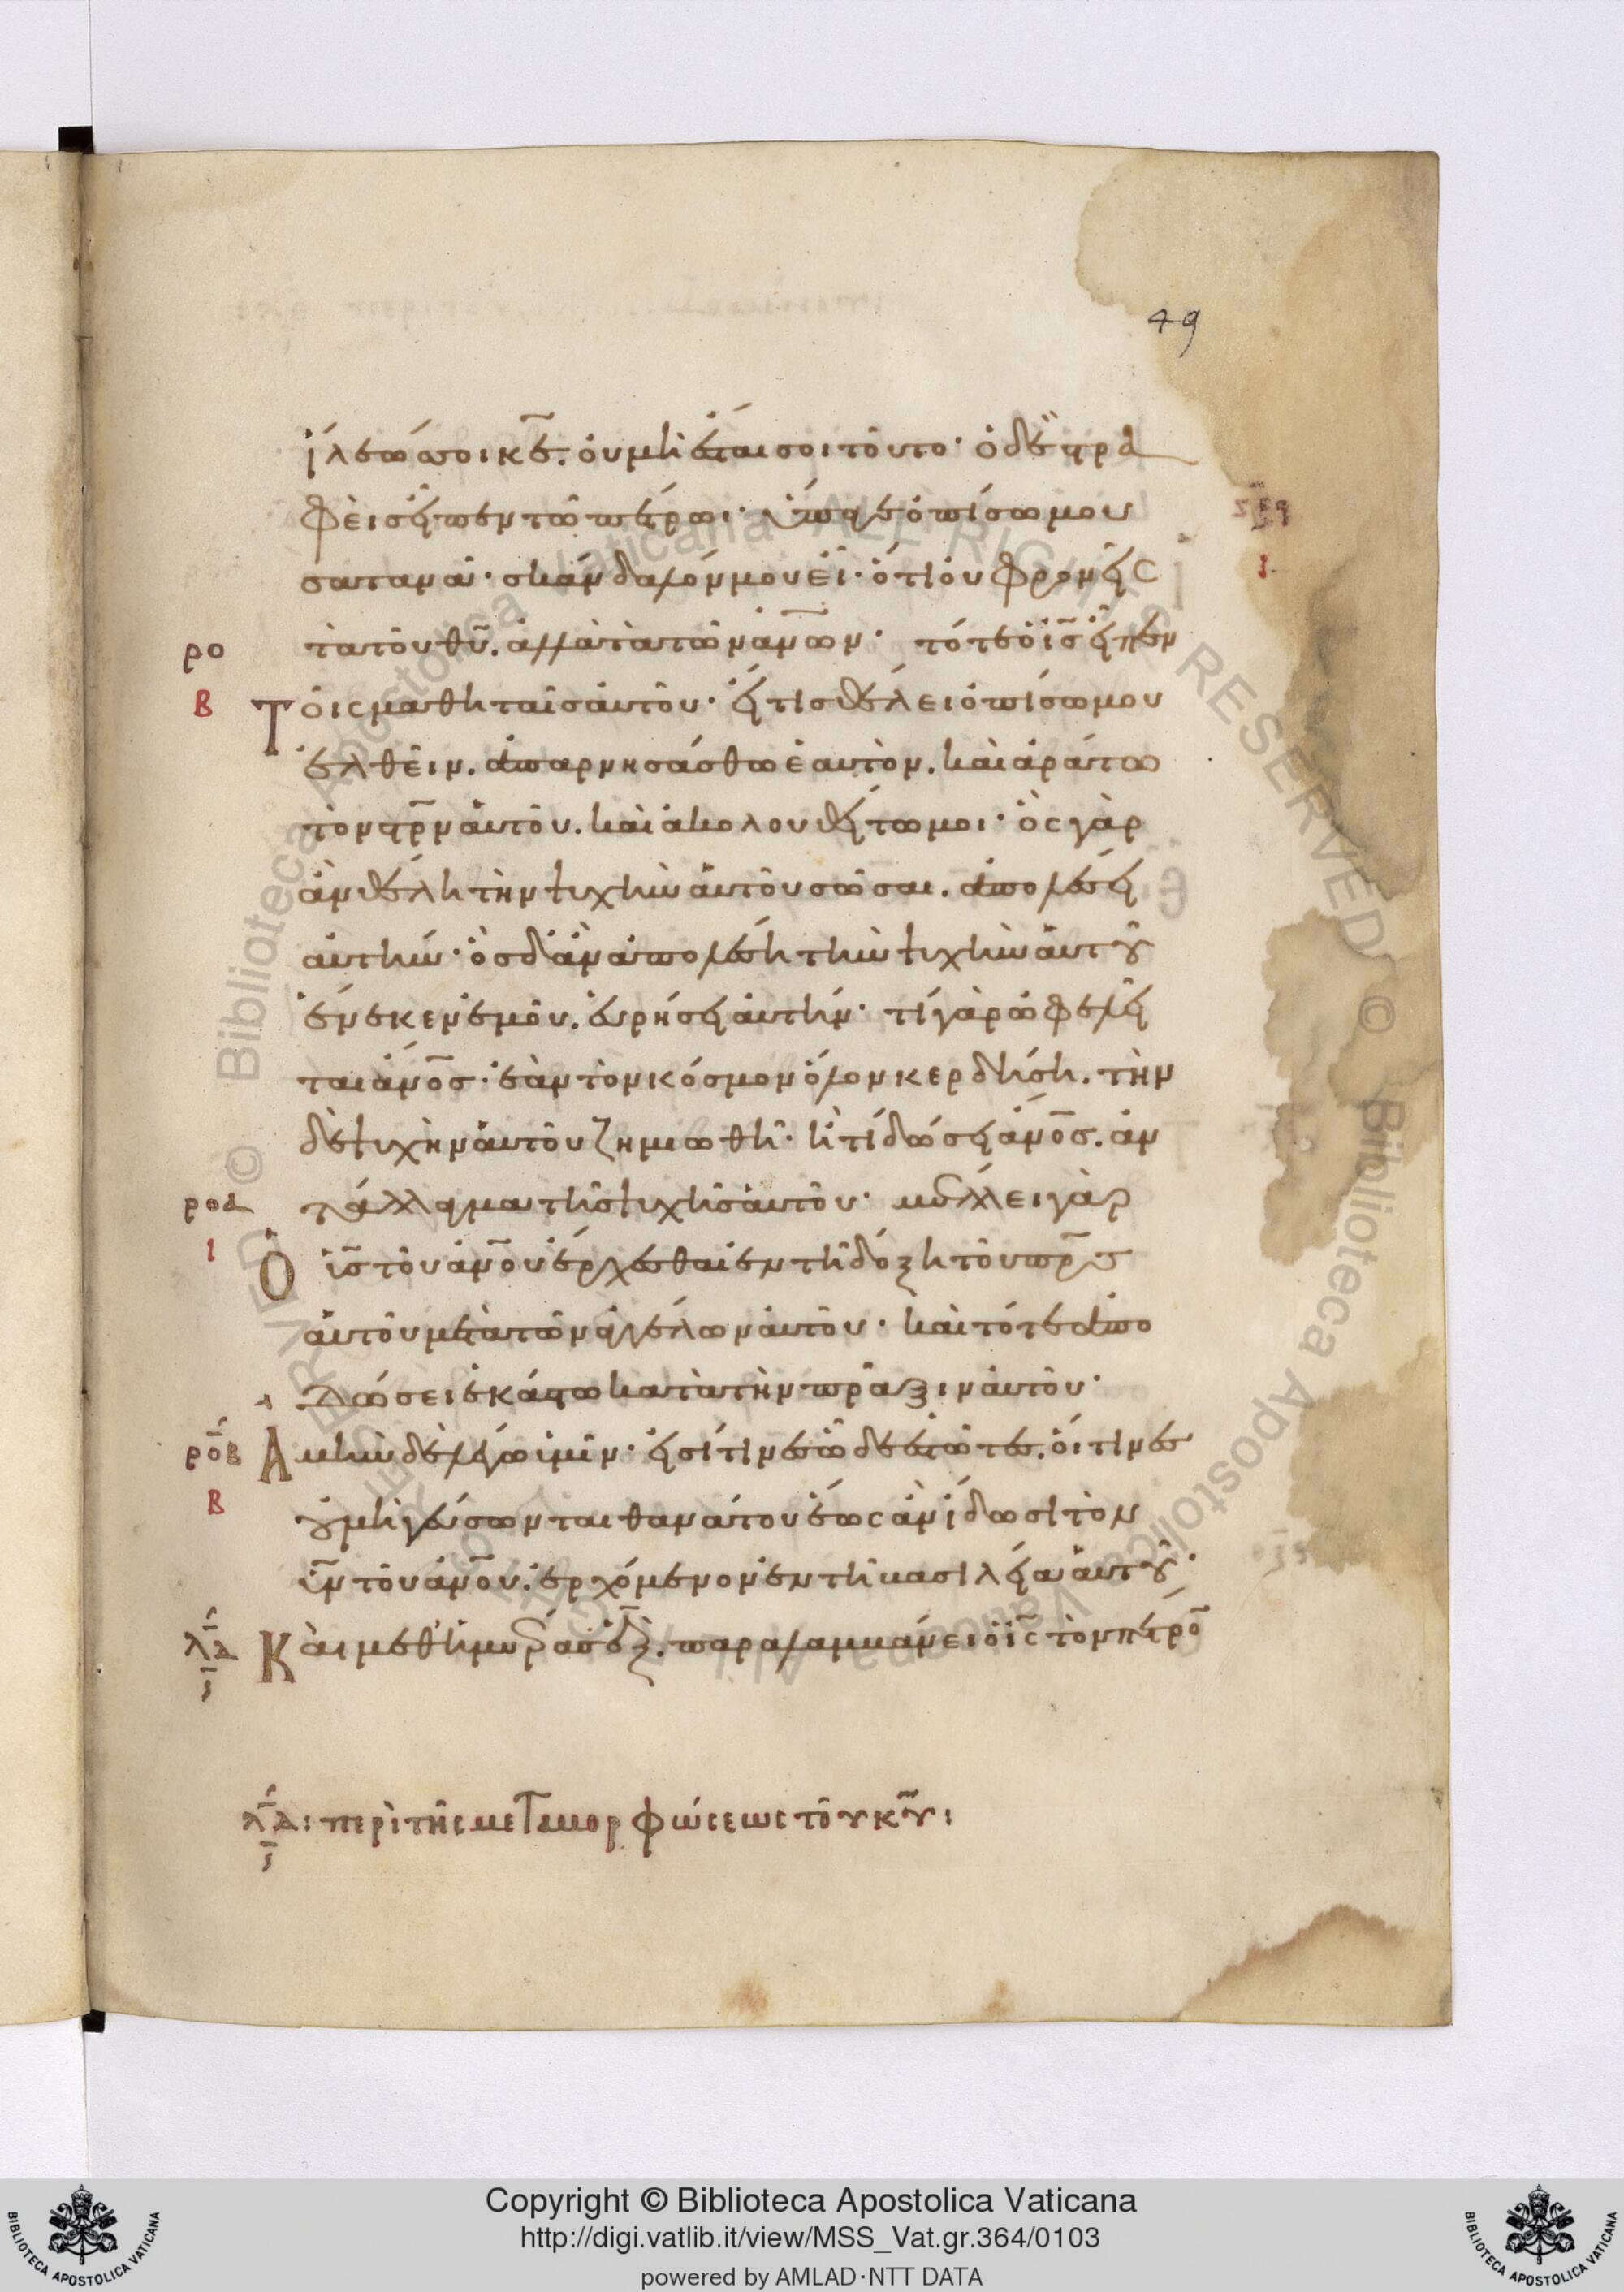 49
ἵλεώς σοι κε̄. οὐ μὴ ἔσται σοι τοῦτο· ὁ δὲ στρα
φεὶς εἶπεν τῶ πέτρωι· ὕπαγε ὀπίσω μου
σατανᾶ· σκάνδαλόν μου εἶ· ὅτι οὐ φρονεῖς
ρο τὰ τοῦ θῡ. ἀλλὰ τὰ τῶν ἀν̄ων· τότε ὁ ις̄ εἶπεν
Β Τοῖς μαθηταῖς αὐτοῦ· εἴ τις θέλει ὀπίσω μου
ἐλθεῖν. ἀπαρνησάσθω ἑαυτὸν. καὶ ἀράτω
τὸν στρ̄ν αὐτοῦ. καὶ ἀκολουθείτω μοι· ὃς γὰρ
ἂν θέλη τὴν ψυχὴν αὐτοῦ σῶσαι. ἀπολέσει
αὐτήν· ὃς δ' ἂν ἀπολέση τὴν ψυχὴν αὐτοῦ
ἕνεκεν ἐμοῦ. εὑρήσει αὐτήν· τί γὰρ ὠφελεῖ
ται ἄνο̄ς· ἐὰν τὸν κόσμον ὅλον κερδήση. τὴν
δὲ ψυχὴν αὐτοῦ ζημιωθῆ· ἢ τί δώσει ἄνο̄ς. ἀν
ροα τάλλαγμα τῆς ψυχῆς αὐτοῦ· μέλλει γὰρ
ι Ὁ ις̄ τοῦ ἀν̄ου ἔρχεσθαι ἐν τῆ δόξη τοῦ πρ̄ς
αὐτοῦ μετὰ τῶν ἀγγέλων αὐτοῦ· καὶ τότε ἀπο
δώσει ἑκάστω κατὰ τὴν πρᾶξιν αὐτοῦ·
ροβ Ἀμὴν δὲ λέγω ὑμῖν· εἰσί τινες ὧδε ἑστῶτες. οἵτινες
Β οὐ μὴ γεύσωνται θανάτου ἕως ἂν ἴδωσι τὸν
ῡν τοῦ ἀν̄ου. ἐρχόμενον ἐν τῆ βασιλεία αὐτοῦ·
λ̄α Καὶ μεθ' ἡμέρας ἓξ. παραλαμβάνει ὁ ις̄ τὸν πέτρο̄
λ̄α: περὶ τῆς μεταμορφώσεως τοῦ κῡ:
Copyright © Biblioteca Apostolica Vaticana
http://digi.vatlib.it/view/MSS_Vat.gr.364/0103
powered by AMLAD·NTT DATA